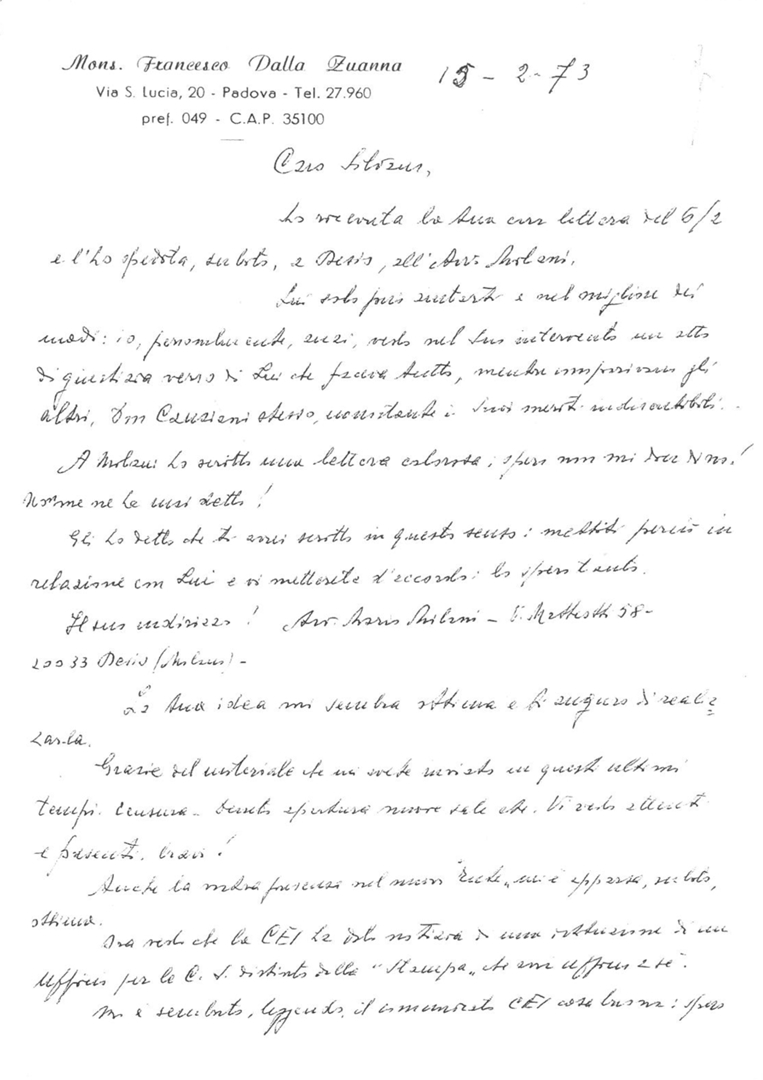 Mons. Francesco Dalla Zuanna
Via S. Lucia, 20 - Padova - Tel. 27.960
pref. 049 - C.A.P. 35100
15 - 2 - 73
Caro Silvano,
ho ricevuta la tua cara lettera del 6/2
e l'ho spedita, subito, a Desio, all'Avv. Milani.
Lui solo può aiutarti e nel migliore dei
modi: io, personalmente, anzi, vedo nel Suo intervento un atto
di giustizia verso di Lui che faceva tutto, mentre comparivano gli
altri, Don Canziani stesso, nonostante i Suoi meriti indiscutibili.
A Milani ho scritto una lettera calorosa; spero non mi dica di no!
Non me ne ha mai detti!
Gli ho detto che ti avrei scritto in questo senso: mettiti perciò in
relazione con Lui e vi metterete d'accordo: lo spero tanto.
Il suo indirizzo! Avv. Mario Milani - V. Matteotti 58 -
20033 Desio (Milano) -
La tua idea mi sembra ottima e ti auguro di realiz=
zarla.
Grazie del materiale che mi avete inviato in questi ultimi
tempi. Censura - apertura nuove sale etc. Vi vedo attenti
e presenti. bravi!
Anche la vostra presenza nel nuovo "Ente" mi è apparsa, subito,
ottima.
Ora vedo che la CEI ha dato notizia di una istituzione di un
Ufficio per le C. S. distinto dalla "Stampa" che avrà ufficio a sé.
Mi è sembrato, leggendo il comunicato CEI cosa buona: spero